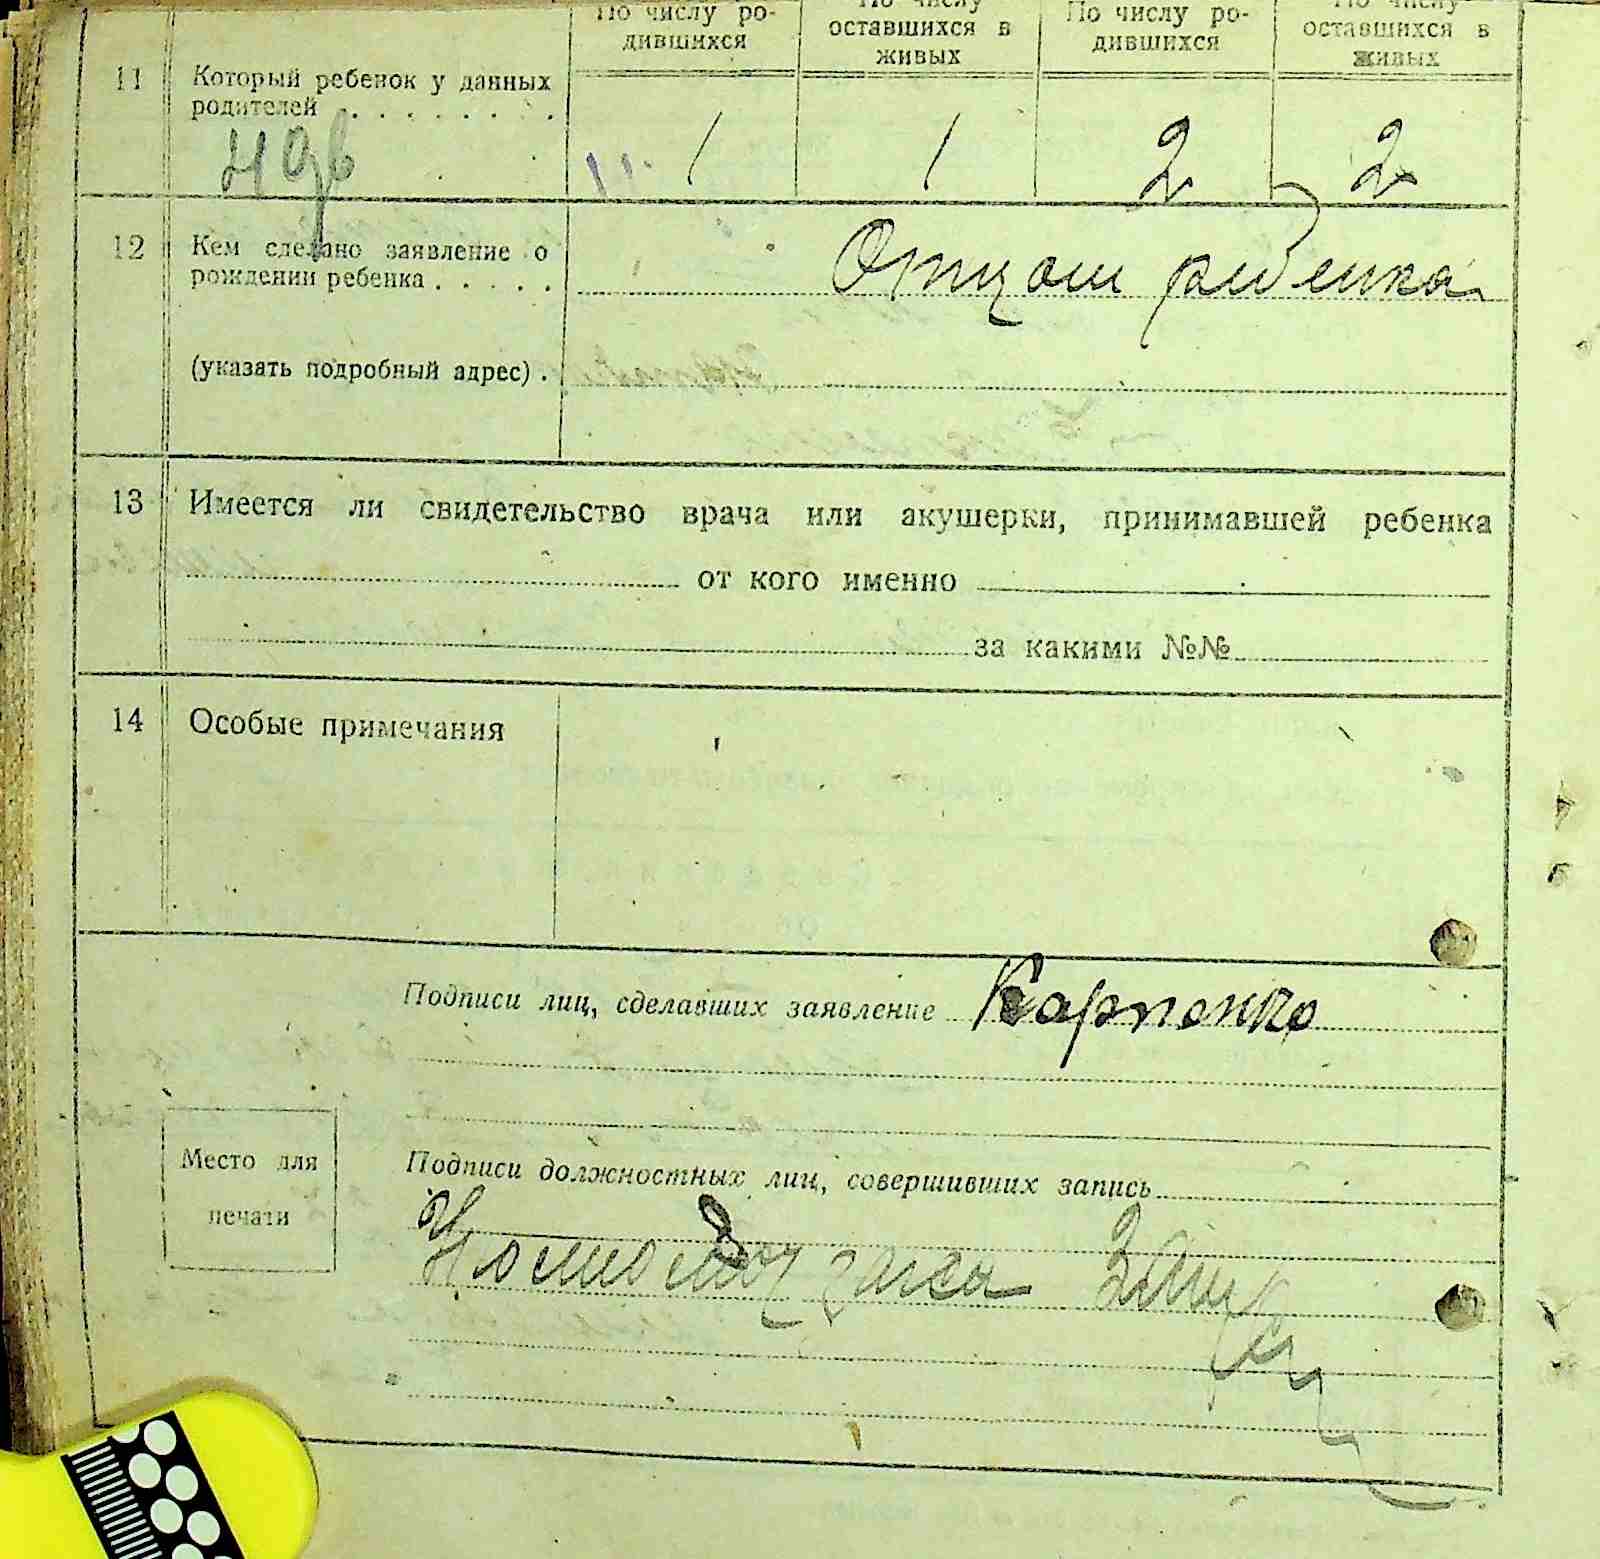 По числу ро- По числу По числу ро- По числу
дившихся оставшихся в дившихся оставшихся в
живых живых
11 Который ребенок у данных
родителей . . . . . . . .
1 1 2 2
12 Кем сделано заявление о
рождении ребенка . . . . . Отцом ребенка
(указать подробный адрес) .
13 Имеется ли свидетельство врача или акушерки, принимавшей ребенка
от кого именно
за какими №№
14 Особые примечания
Подписи лиц, сделавших заявление Карпенко
Место для
печати
Подписи должностных лиц, совершивших запись
загса